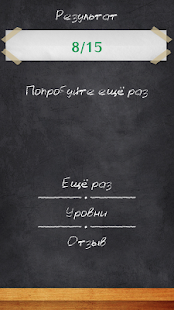 Результат
8/15
Попробуйте ещё раз
Ещё раз
Уровни
Отзыв